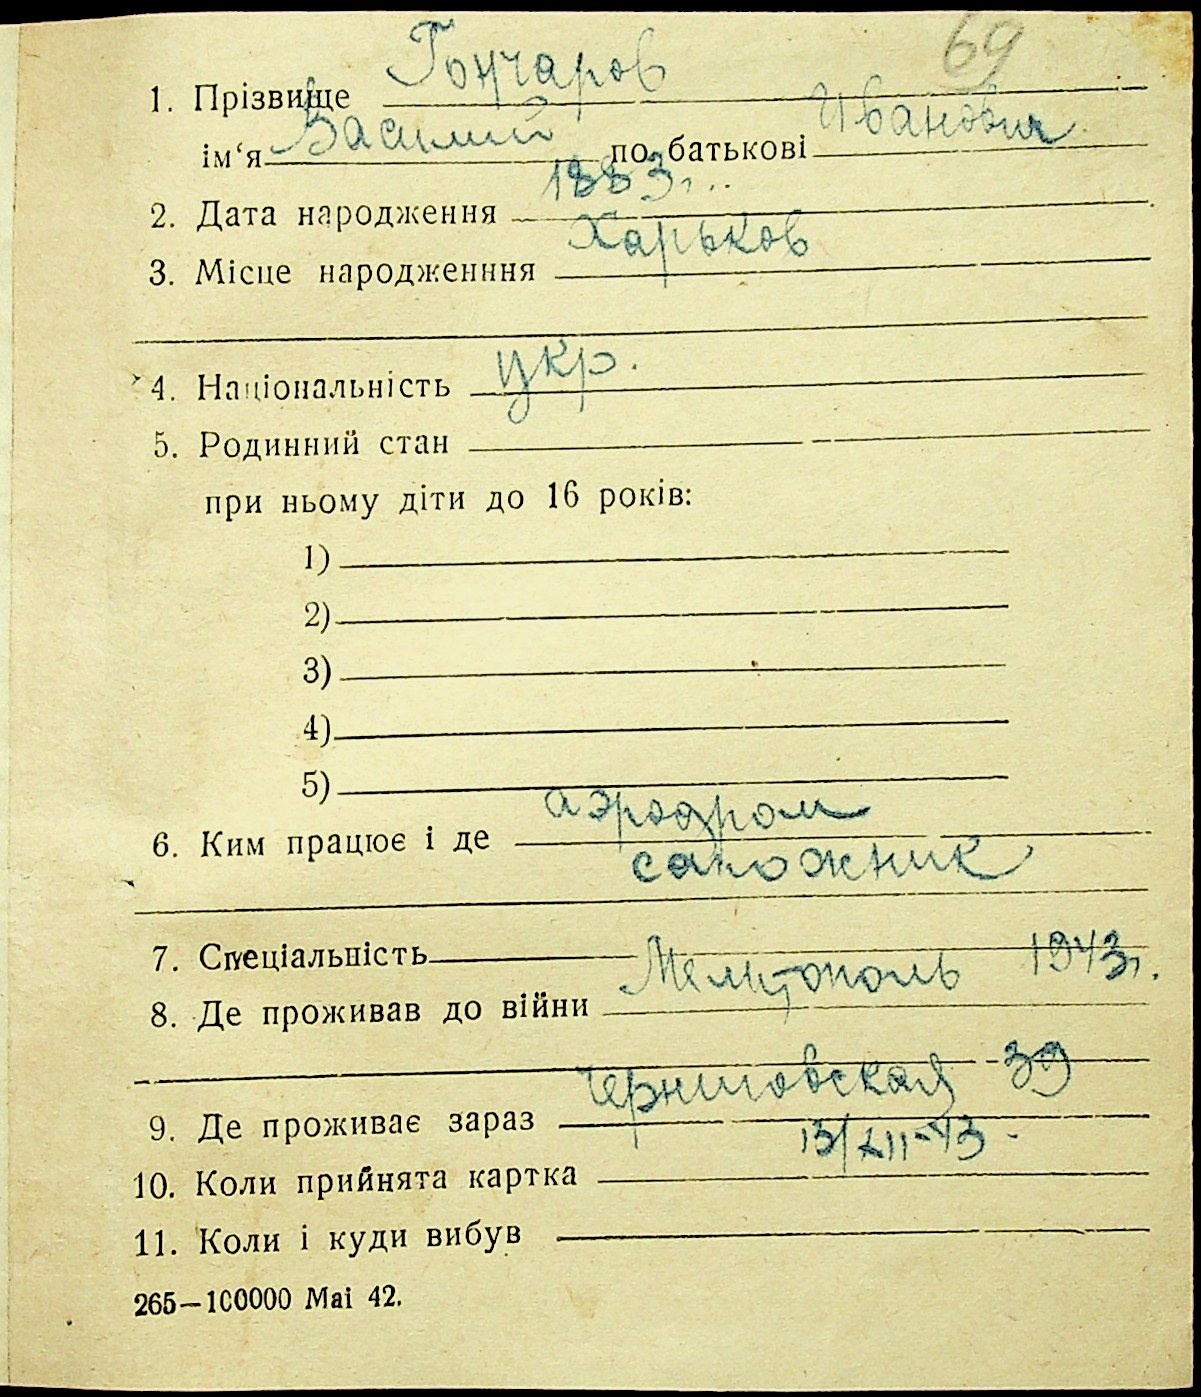 69
1. Прізвище Гончаров
ім‘я Василий по батькові Иванович
2. Дата народження 1883 г.
3. Місце народженння Харьков
4. Національність укр.
5. Родинний стан
при ньому діти до 16 років:
1)
2)
3)
4)
5)
6. Ким працює і де аэродром
сапожник
7. Спеціальність
8. Де проживав до війни Мелитополь 1943 г.
9. Де проживає зараз 39
10. Коли прийнята картка 13/XII-43
11. Коли і куди вибув
265—100000 Mai 42.